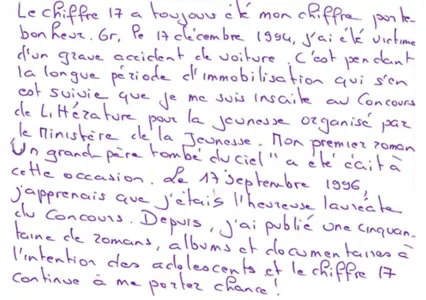 Le chiffre 17 a toujours été mon chiffre porte
bonheur. Or, le 17 décembre 1994, j'ai été victime
d'un grave accident de voiture. C'est pendant
la longue période d'immobilisation qui s'en
est suivie que je me suis inscrite au Concours
de Littérature pour la jeunesse organisé par
le Ministère de la Jeunesse. Mon premier roman
"Un grand-père tombé du ciel" a été écrit à
cette occasion. Le 17 septembre 1996,
j'apprenais que j'étais l'heureuse lauréate
du Concours. Depuis, j'ai publié une cinquan-
taine de romans, albums et documentaires à
l'intention des adolescents et le chiffre 17
continue à me porter chance!